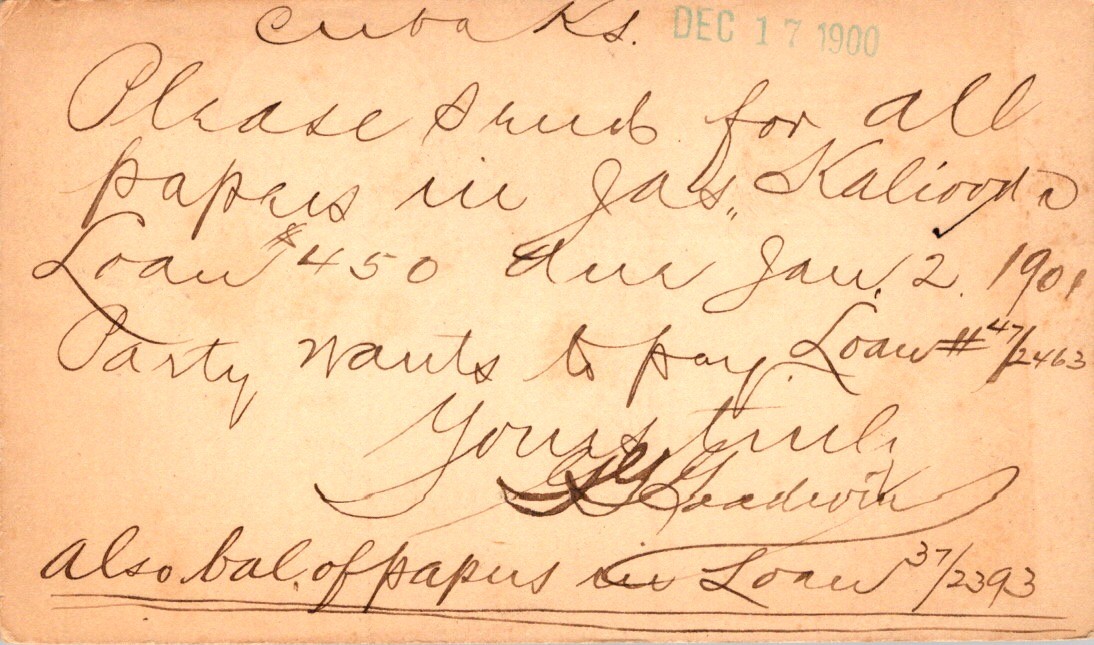 Cuba Ks. DEC 17 1900
Please send for all
papers in Jas. Kalivoda
Loan $450 due Jan. 2. 1901
Party wants to pay. Loan # 47/2463
Yours truly
Goodwin
also bal. of papers in Loan 37/2393